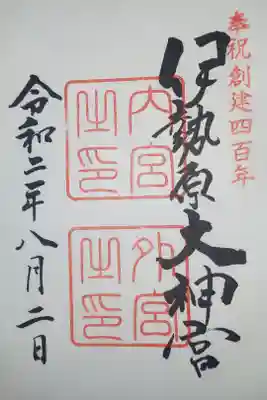 奉祝創建四百年
伊勢原大神宮
内宮之印
外宮之印
令和二年八月二日